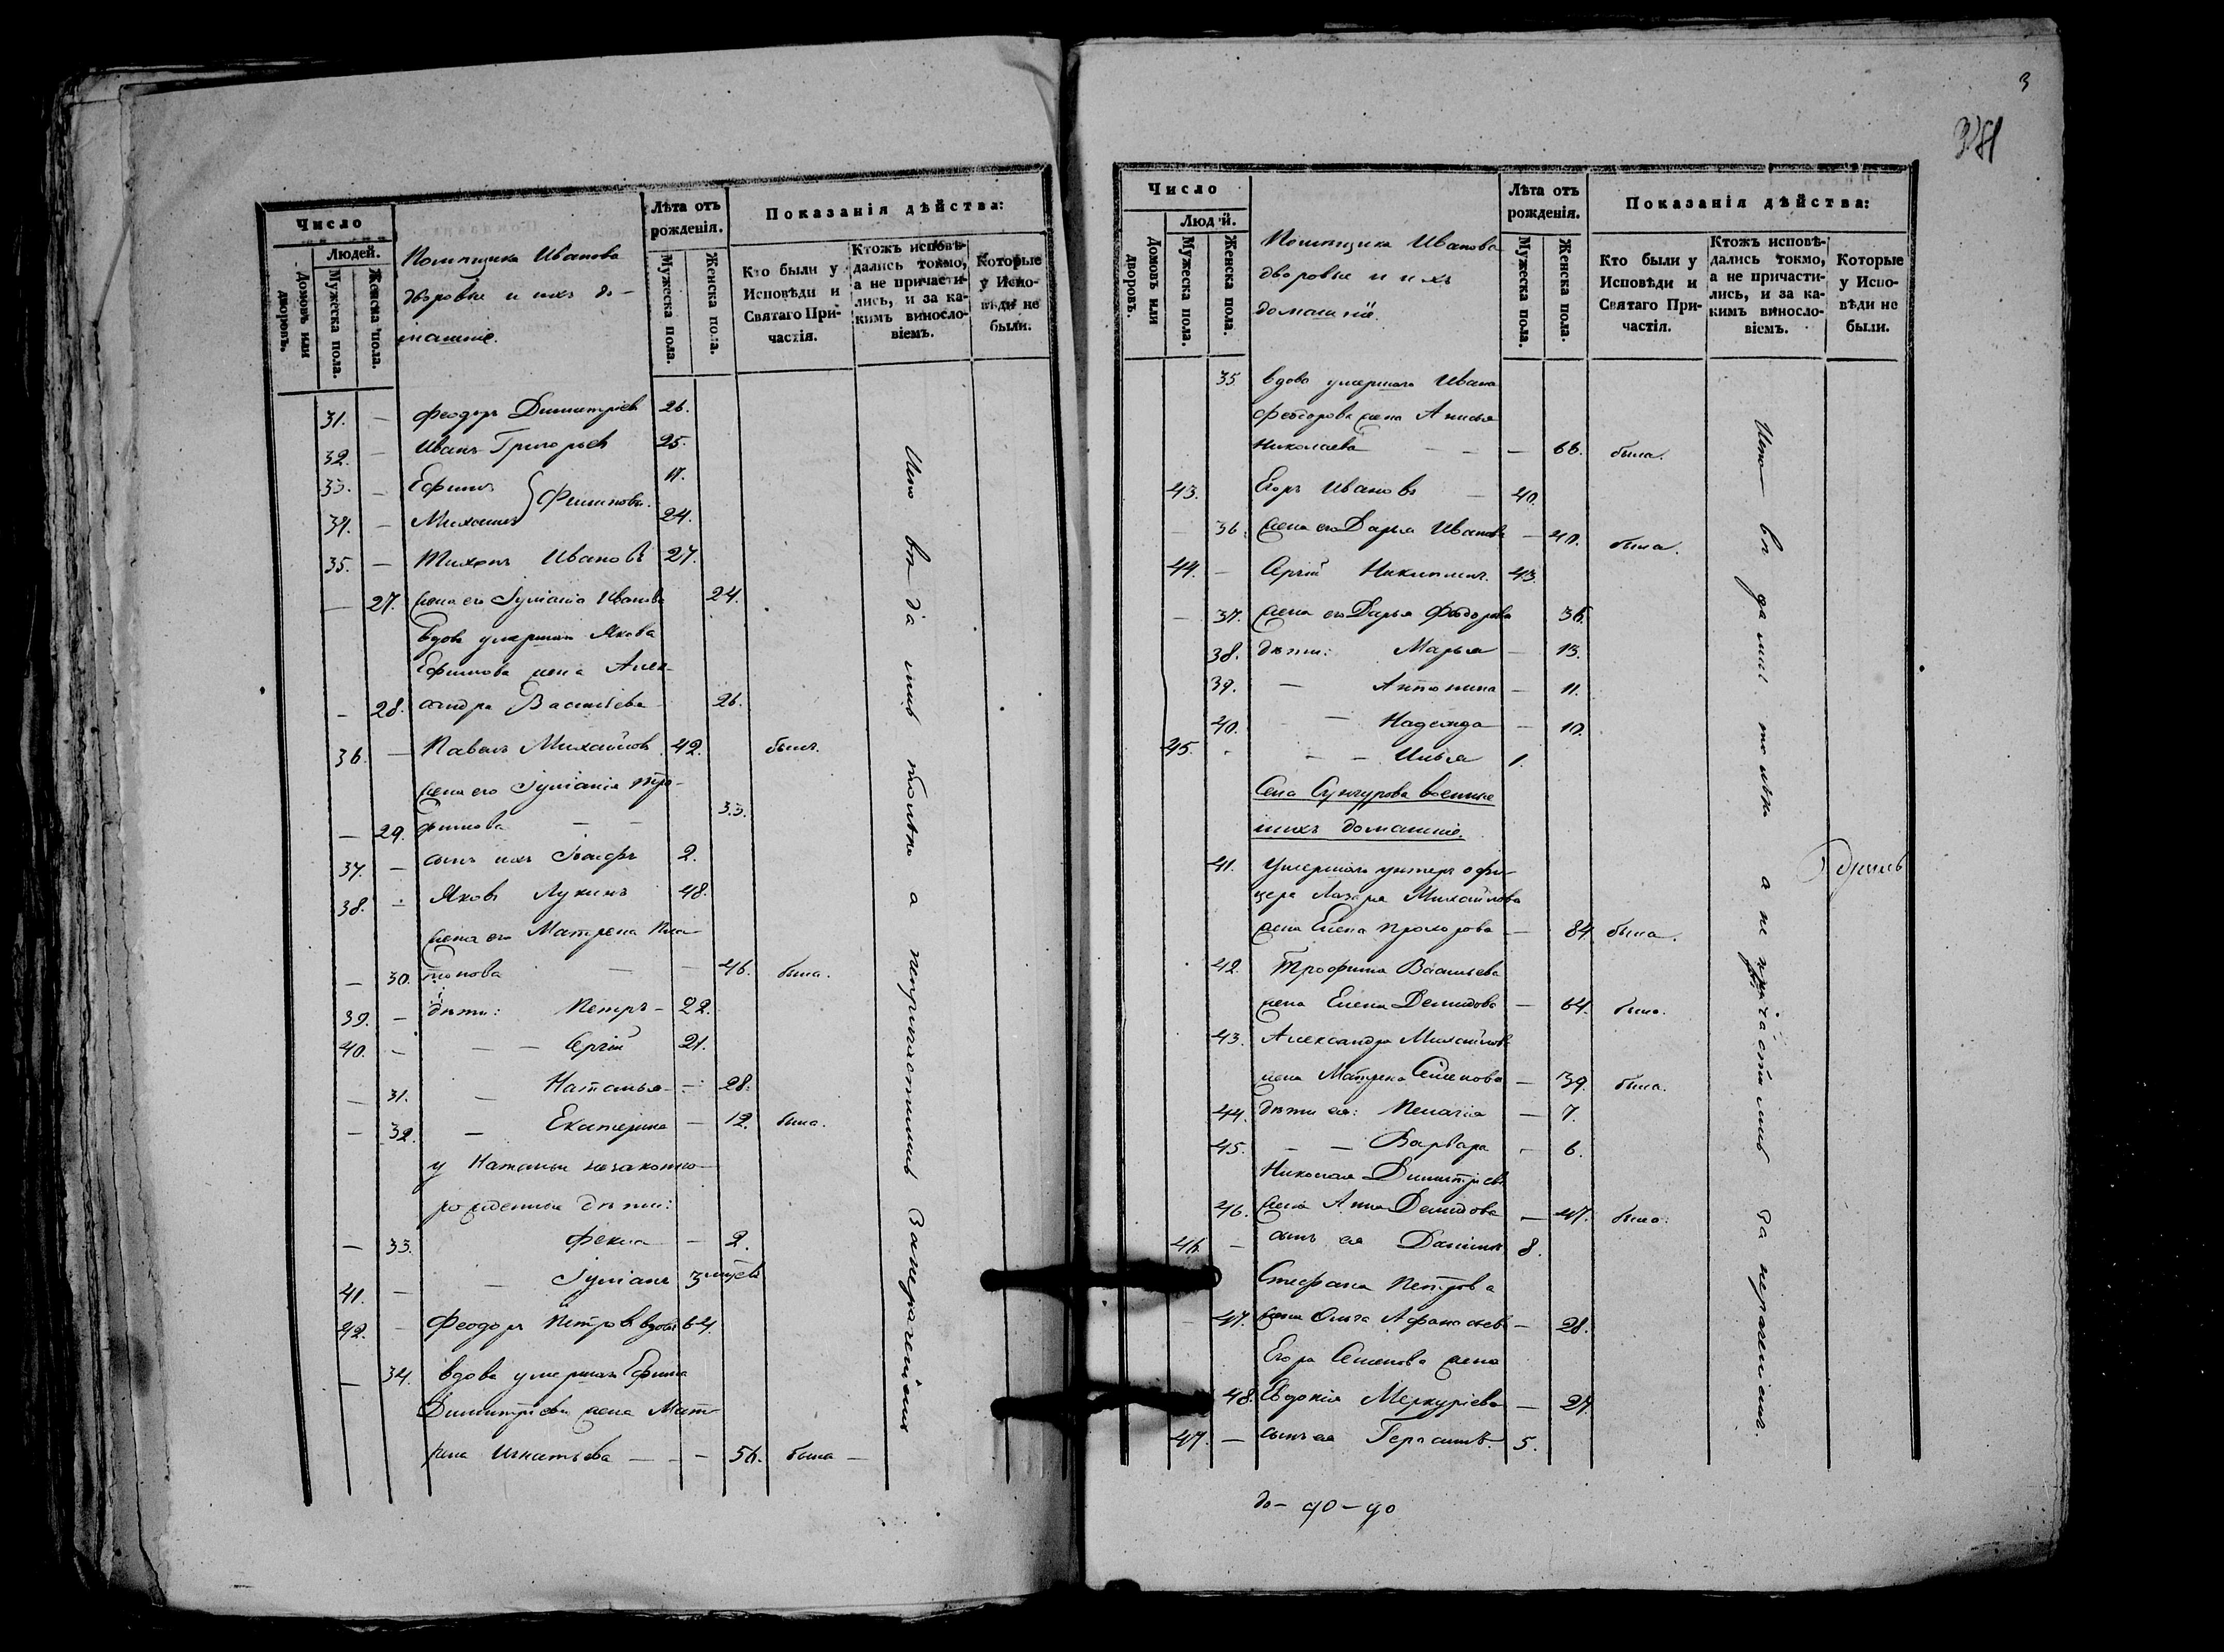 Число
Людей.
Домовъ или дворовъ.
Мужеска пола.
Женска пола.
Помѣщика Иванова
дворовые и ихъ до-
машніе.
Лѣта отъ рожденія.
Мужеска пола.
Женска пола.
Показанія дѣйства:
Кто были у Исповѣди и Святаго Причастія.
Ктожъ исповѣдались токмо, а не причастились, и за какимъ винословіемъ.
Которые у Исповѣди не были.
31. — Феодоръ Димитріевъ 26.
32. — Иванъ Григорьевъ 25.
33. — Ефимъ 17.
Филиповы.
34. — Михаилъ 24.
35. — Тихонъ Ивановъ 27.
— 27. жена его Іуліанія Иванова 24.
вдова умершаго Якова
Ефимова жена Алек-
— 28. сандра Васильева 26.
36. — Павелъ Михайловъ 42. былъ.
жена его Іуліанія Тро-
— 29. фимова — — 33.
37. — сынъ ихъ Іосифъ 2.
38. — Яковъ Лукинъ 48.
жена его Матрена Пла-
— 30. тонова — — 46. была.
39. — дѣти: Петръ — 22.
40. — — — Сергій 21.
— 31. — Наталья — 28.
— 32. — Екатерина — 12. была.
у Натальи незаконно-
рожденные дѣти:
— 33. Фекла — 2.
41. — — Іуліанъ 3 мѣсц.
42. — Феодоръ Петровъ вдовъ 64.
— 34. вдова умершаго Ефима
Димитріева жена Мат-
рена Игнатьева — — — 56. была —
токмо а не причастились За нерадѣніемъ
3
381
Число
Людей.
Домовъ или дворовъ.
Мужеска пола.
Женска пола.
Помѣщика Иванова
дворовые и ихъ
домашніе.
Лѣта отъ рожденія.
Мужеска пола.
Женска пола.
Показанія дѣйства:
Кто были у Исповѣди и Святаго Причастія.
Ктожъ исповѣдались токмо, а не причастились, и за какимъ винословіемъ.
Которые у Исповѣди не были.
35 вдова умершаго Ивана
Феодорова жена Анисья
Николаева — — — 66. была.
43. Егоръ Ивановъ — 40.
— 36. жена его Дарья Иванова — 40. была.
44. — Сергій Никитинъ. 43.
— 37. жена его Дарья Феодорова 36.
38. дѣти: Марья — 13.
39. — Антонина — 11.
40. — Надежда — 10.
45. — — Илья 1.
Села Сунгурова военные
и ихъ домашніе.
41. Умершаго унтеръ офи-
цера Лазаря Михайлова
жена Елена Прохорова — 84. была.
42. Трофима Васильева
жена Елена Демидова — 64. была.
43. Александра Михайлова
жена Матрена Семенова — 39. была.
44. дѣти ея: Пелагія — 7.
45. — — Варвара — 6.
Николая Димитріева
46. жена Анна Демидова — 47. была.
46. — сынъ ея Даніилъ 8.
Стефана Петрова
47. жена Ольга Афанасьева — 28.
Егора Семенова жена
48. Евдокія Меркуріева — 27.
47. — сынъ ея Герасимъ. 5.
токмо а не причастились За нерадѣніемъ.
до — 90 — 90